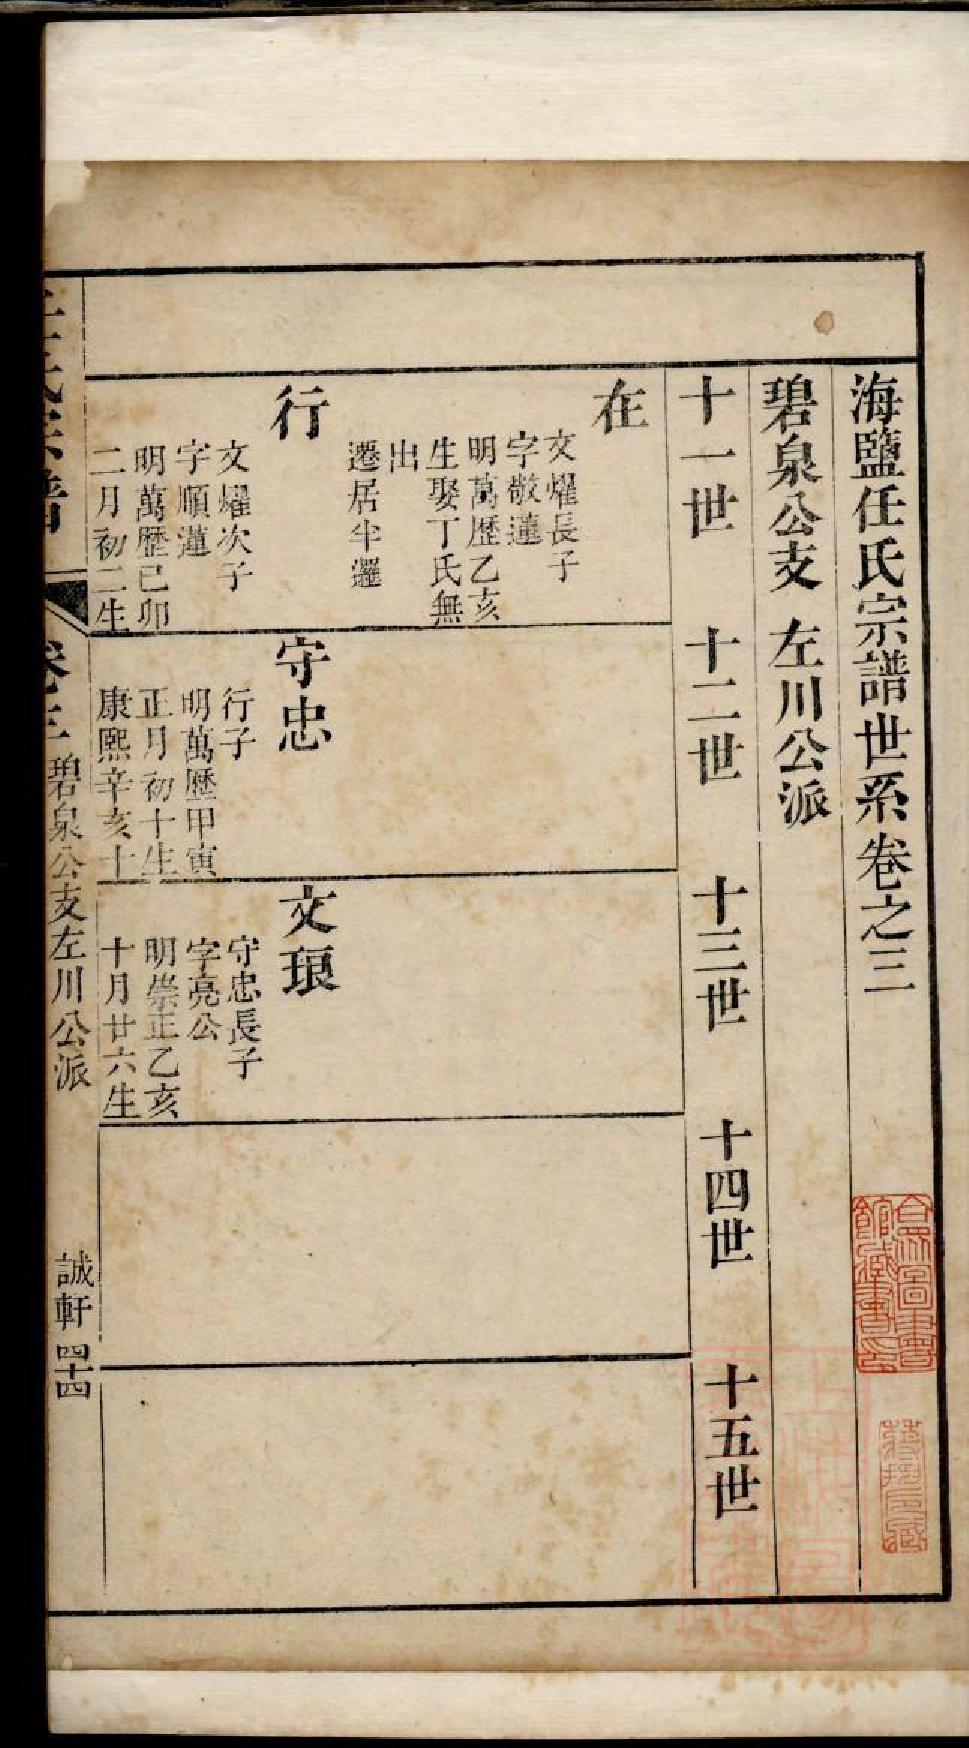 海鹽任氏宗譜世系卷之三
碧泉公支 左川公派
十一世 十二世 十三世 十四世 十五世
在
文燿長子
字敬蓮
明萬歷乙亥
生娶丁氏無
出
遷居半邏
行
文燿次子
字順蓮
明萬歷已卯
二月初二生
守忠
行子
明萬歷甲寅
正月初十生
康熙辛亥十
文琅
守忠長子
字亮公
明崇正乙亥
十月廿六生
任氏宗譜
卷三 碧泉公支左川公派
誠軒 四十四